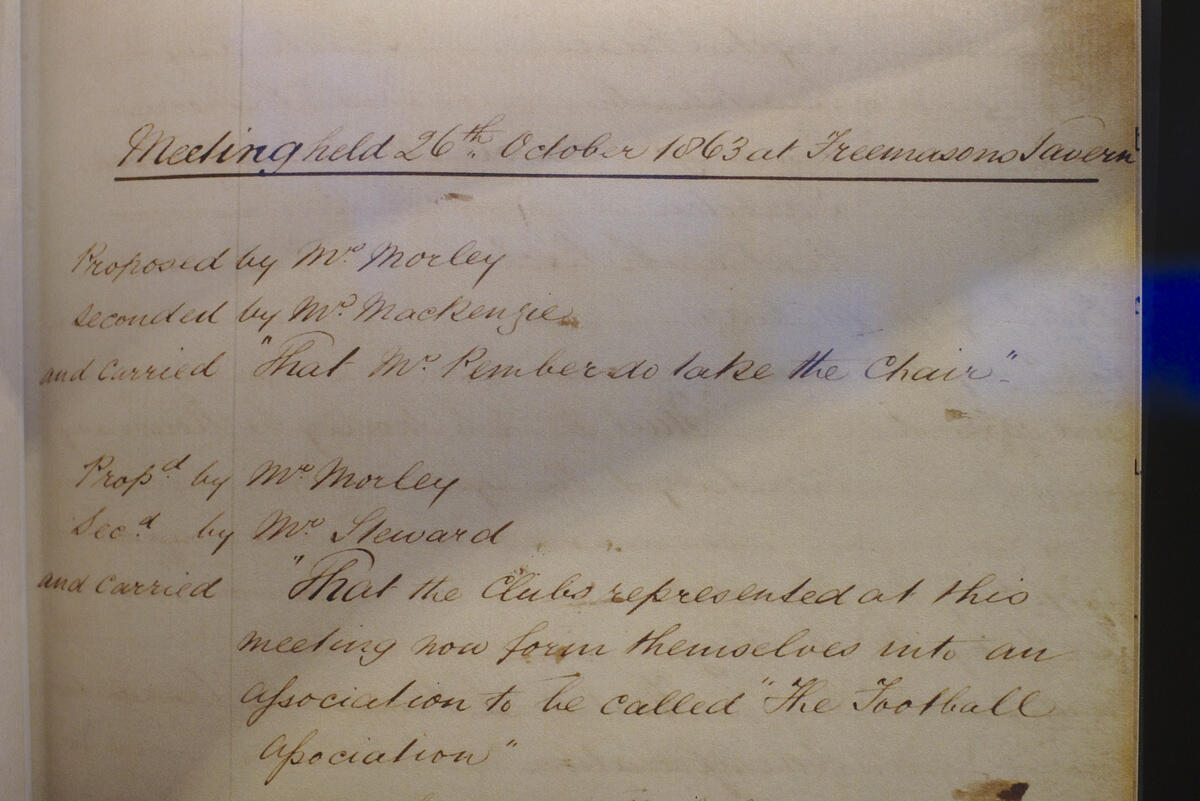 Meeting held 26th October 1863 at Freemasons Tavern
Proposed by Mr. Morley
seconded by Mr. Mackenzie
and carried "That Mr. Pember do take the Chair"
Propd. by Mr. Morley
Secd. by Mr. Steward
and carried "That the Clubs represented at this
meeting now form themselves into an
Aſsociation to be called "The Football
Aſsociation"